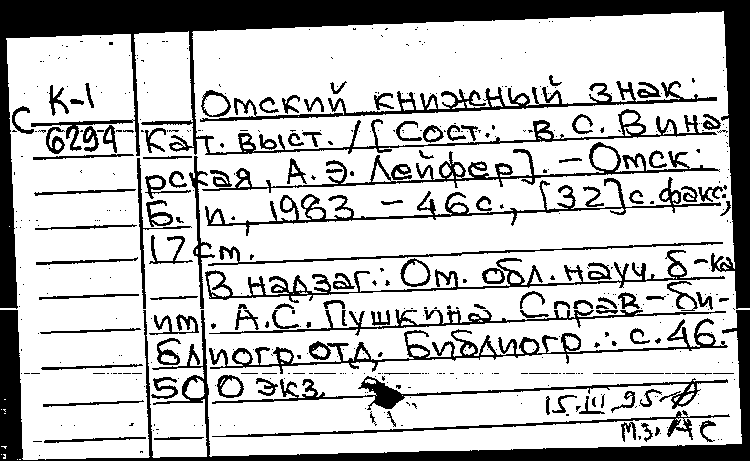 К-1
С
6294
Омский книжный знак:
Кат. выст. / [Сост.: В.С. Вина-
рская, А.Э. Лейфер]. – Омск:
Б. и., 1983. – 46 с., [32] с. факс;
17 см.
В надзаг.: Ом. обл. науч. б-ка
им. А.С. Пушкина. Справ-би-
блиогр. отд. Библиогр.: с. 46. –
500 экз.
15.III.95
М.З. АС